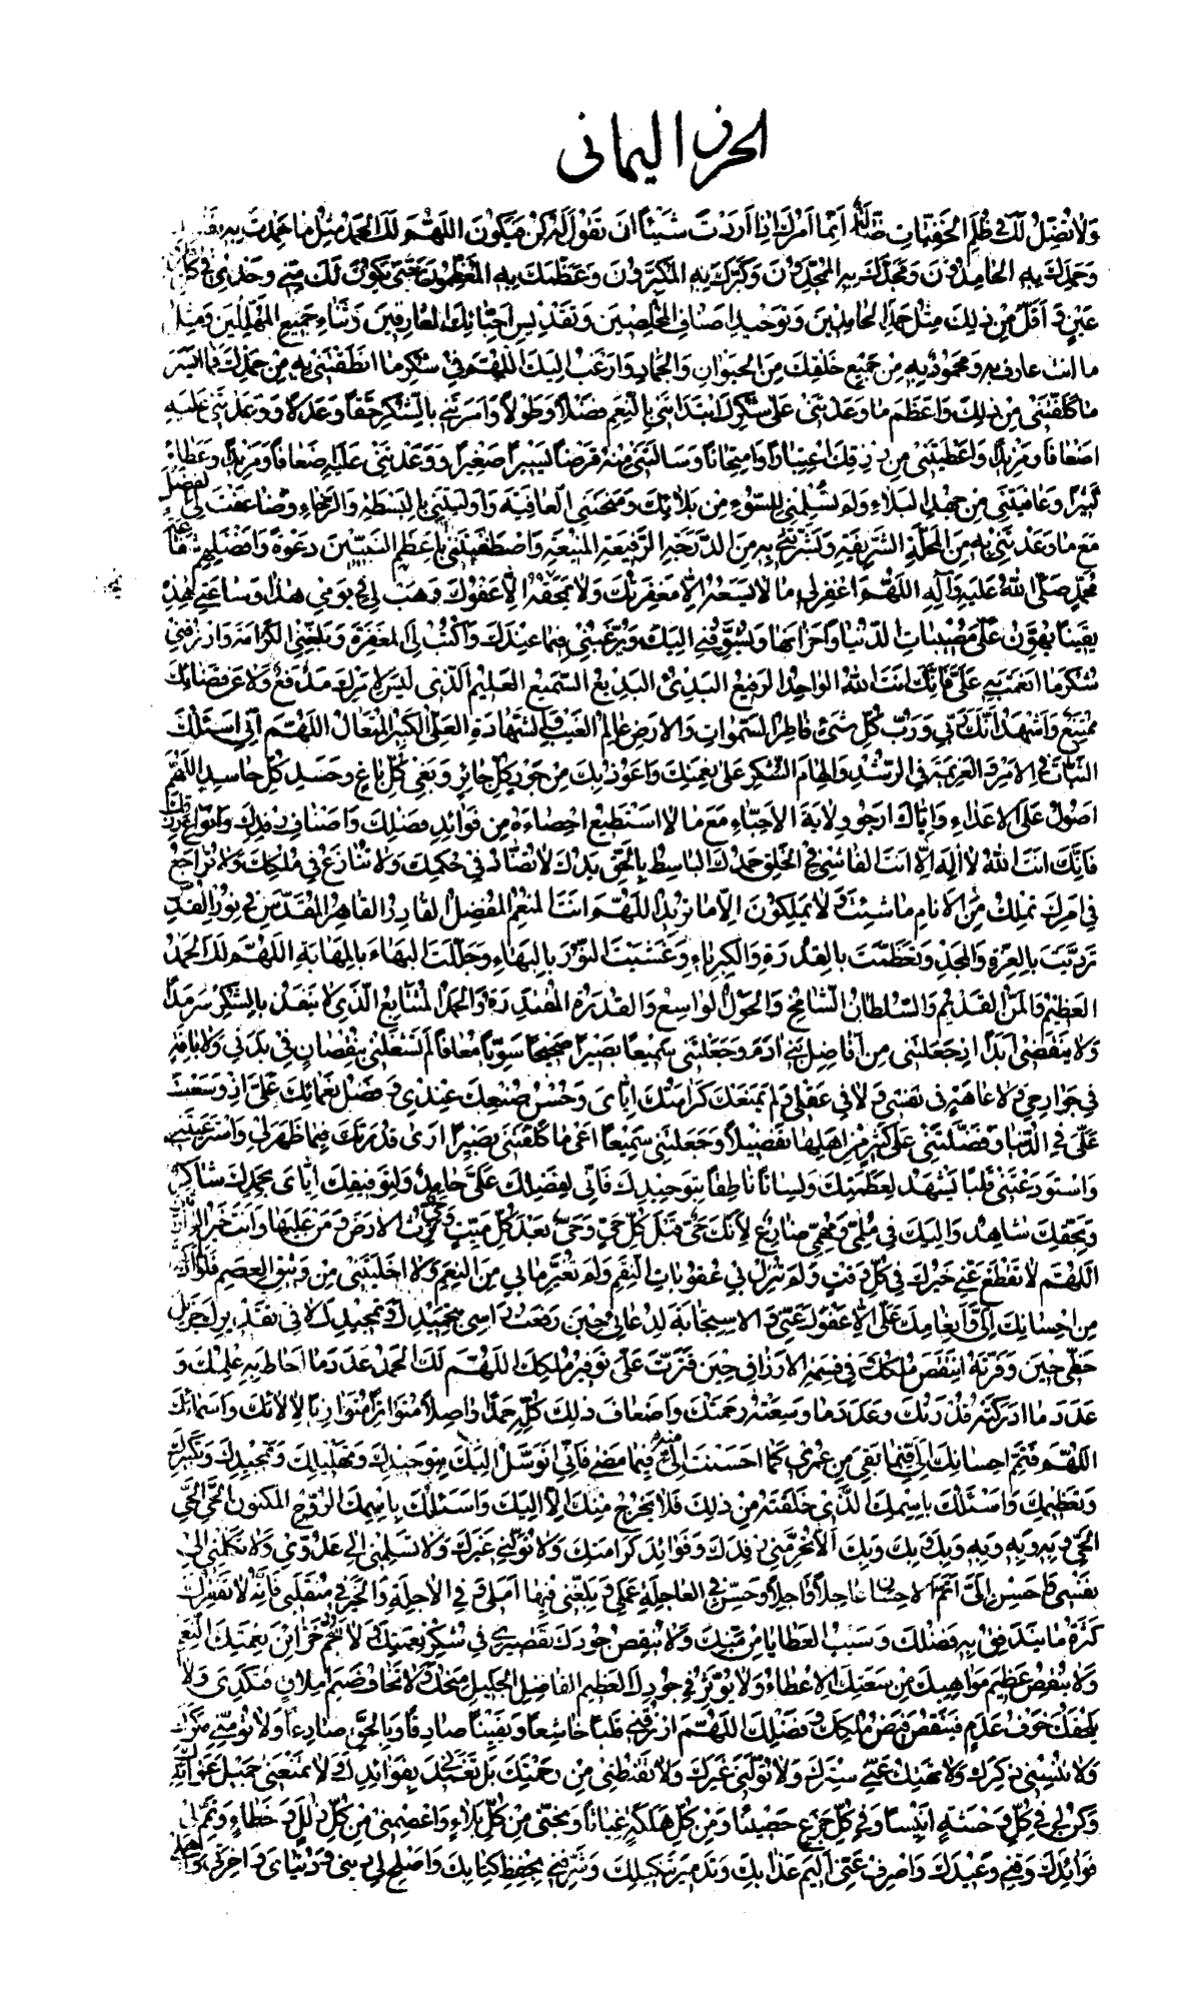 الحرز اليمانى
وَلا تُضِلَّ لَكَ فى ظُلَمِ الخَفِيّاتِ ضالَّةٌ اِنَّما اَمْرُكَ اِذا اَرَدْتَ شَيْئاً اَنْ تَقُولَ لَهُ كُنْ فَيَكُونَ اَللّهُمَّ لَكَ الحَمْدُ مِثْلَ ما حَمِدْتَ بِهِ
وَحَمِدَكَ بِهِ الحامِدُونَ وَمَجَّدَكَ بِهِ المُمَجِّدُونَ وَكَبَّرَكَ بِهِ المُكَبِّرُونَ وَعَظَّمَكَ بِهِ المُعَظِّمُونَ حَتّى يَكُونَ لَكَ مِنّى وَحْدى فى كُلِّ
عَيْنٍ وَاَقَلَّ مِنْ ذلِكَ مِثْلُ حَمْدِ الحامِدينَ وَتَوْحيدِ اَصْنافِ المُخْلِصينَ وَتَقْديسِ اَحِبّائِكَ العارِفينَ وَثَناءِ جَميعِ المُهَلِّلينَ وَمِثْلُ
ما انت عارف به وَمَحْمُودٌ بِهِ مِنْ جَميعِ خَلْقِكَ مِنَ الحَيَوانِ وَالجَمادِ وَاَرْغَبُ اِلَيْكَ اَللّهُمَّ فى شُكْرِ ما اَنْطَقْتَنى بِهِ مِنْ حَمْدِكَ فَما اَيْسَرَ
ما كَلَّفْتَنى مِنْ ذلِكَ وَاَعْظَمَ ما وَعَدْتَنى عَلى شُكْرِكَ اِبْتَدَأْتَنى بِالنِّعَمِ فَضْلاً وَطَوْلاً وَاَمَرْتَنى بِالشُّكْرِ حَقّاً وَعَدْلاً وَوَعَدْتَنى عَلَيْهِ
اَضْعافاً وَمَزيداً وَاَعْطَيْتَنى مِنْ رِزْقِكَ اِعْتِباراً وَامْتِحاناً وَسَاَلْتَنى مِنْهُ قَرْضاً يَسيراً صَغيراً وَوَعَدْتَنى عَلَيْهِ اَضْعافاً وَمَزيداً وَعَطاءً
كَثيراً وَعافَيْتَنى مِنْ جَهْدِ البَلاءِ وَلَمْ تُسْلِمْنى لِلسُّوءِ مِنْ بَلائِكَ وَمَنَحْتَنى العافِيَةَ وَاَوْلَيْتَنى بِالبَسْطَةِ وَالرَّخاءِ وَضاعَفْتَ لِىَ الفَضْلَ
مَعَ ما وَعَدْتَنى بِهِ مِنَ المَحَلَّةِ الشَّريفَةِ وَبَشَّرْتَنى بِهِ مِنَ الدَّرَجَةِ الرَّفيعَةِ المَنيعَةِ وَاصْطَفَيْتَنى بِاَعْظَمِ النَّبِيّينَ دَعْوَةً وَاَفْضَلِهِمْ شَفاعَةً
مُحَمَّدٍ صَلَّى اللهُ عَلَيْهِ وَآلِهِ اَللّهُمَّ اغْفِرْ لى ما لا يَسَعُهُ اِلّا مَغْفِرَتُكَ وَلا يَمْحَقُهُ اِلّا عَفْوُكَ وَهَبْ لى فى يَوْمى هذا وَساعَتى هذِهِ
يَقيناً يُهَوِّنُ عَلَىَّ مُصيباتِ الدُّنْيا وَاَحْزانَها وَيُشَوِّقُنى اِلَيْكَ وَيُرَغِّبُنى فيما عِنْدَكَ وَاكْتُبْ لِىَ المَغْفِرَةَ وَبَلِّغْنِى الكَرامَةَ وَارْزُقْنى
شُكْرَ ما اَنْعَمْتَ بِهِ عَلَىَّ فَاِنَّكَ اَنْتَ اللهُ الواحِدُ الرَّفيعُ البَدىءُ البَديعُ السَّميعُ العَليمُ الَّذى لَيْسَ لِاَمْرِكَ مَدْفَعٌ وَلا عَنْ قَضائِكَ
مُمْتَنِعٌ وَاَشْهَدُ اَنَّكَ رَبّى وَرَبُّ كُلِّ شَىْءٍ فاطِرُ السَّمواتِ وَالاَرْضِ عالِمُ الغَيْبِ وَالشَّهادَةِ العَلِىُّ الكَبيرُ المُتَعالُ اَللّهُمَّ اِنّى اَسْئَلُكَ
الثَّباتَ فى الاَمْرِ وَالعَزيمَةَ فى الرُّشْدِ وَاِلْهامَ الشُّكْرِ عَلى نِعْمَتِكَ وَاَعُوذُ بِكَ مِنْ جَوْرِ كُلِّ جائِرٍ وَبَغْىِ كُلِّ باغٍ وَحَسَدِ كُلِّ حاسِدٍ اَللّهُمَّ بِكَ
اَصُولُ عَلَى الاَعْداءِ وَاِيّاكَ اَرْجُو وِلايَةَ الاَحِبّاءِ مَعَ ما لا اَسْتَطيعُ اِحْصاءَهُ مِنْ فَوائِدِ فَضْلِكَ وَاَصْنافِ رِفْدِكَ وَاَنْواعِ رِزْقِكَ
فَاِنَّكَ اَنْتَ اللهُ لا اِلهَ اِلّا اَنْتَ الفاشى فِى الخَلْقِ حَمْدُكَ الباسِطُ بِالحَقِّ يَدُكَ لا تُضادُّ فى حُكْمِكَ وَلا تُنازَعُ فى مُلْكِكَ وَلا تُراجَعُ
فى اَمْرِكَ تَمْلِكُ مِنَ الاَنامِ ما شِئْتَ وَلا يَمْلِكُونَ اِلّا ما تُريدُ اَللّهُمَّ اَنْتَ المُنْعِمُ المُفْضِلُ القادِرُ القاهِرُ المُقَدَّسُ فى نُورِ القُدْسِ
تَرَدَّيْتَ بِالعِزَّةِ وَالمَجْدِ وَتَعَظَّمْتَ بِالقُدْرَةِ وَالكِبْرِياءِ وَغَشَّيْتَ النُّورَ بِالبَهاءِ وَجَلَّلْتَ البَهاءَ بِالمَهابَةِ اَللّهُمَّ لَكَ الحَمْدُ
العَظيمُ وَالمَنُّ القَديمُ وَالسُّلْطانُ الشّامِخُ وَالحَوْلُ الواسِعُ وَالقُدْرَةُ المُقْتَدِرَةُ وَالحَمْدُ المُتَتابِعُ الَّذى لا يَنْفَدُ بِالشُّكْرِ سَرْمَداً
وَلا يَنْقَضى اَبَداً اِذْ جَعَلْتَنى مِنْ اَفاضِلِ بَنى آدَمَ وَجَعَلْتَنى سَميعاً بَصيراً صَحيحاً سَوِيّاً مُعافاً لَمْ تَشْغَلْنى بِنُقْصانٍ فى بَدَنى وَلا بِآفَةٍ
فى جَوارِحى وَلا عاهَةٍ فى نَفْسى وَلا فى عَقْلى وَلَمْ يَمْنَعْكَ كَرامَتُكَ اِيّاىَ وَحُسْنُ صُنْعِكَ عِنْدى وَفَضْلُ نَعْمائِكَ عَلَىَّ اِذْ وَسَّعْتَ
عَلَىَّ فِى الدُّنْيا وَفَضَّلْتَنى عَلى كَثيرٍ مِنْ اَهْلِها تَفْضيلاً وَجَعَلْتَنى سَميعاً اَعى ما كَلَّفْتَنى بَصيراً اَرى قُدْرَتَكَ فيما ظَهَرَ لى وَاسْتَرْعَيْتَنى
وَاسْتَوْدَعْتَنى قَلْباً يَشْهَدُ لِعَظَمَتِكَ وَلِساناً ناطِقاً بِتَوْحيدِكَ فَاِنّى لِفَضْلِكَ عَلَىَّ حامِدٌ وَلِتَوْفيقِكَ اِيّاىَ بِحَمْدِكَ شاكِرٌ
وَبِحَقِّكَ شاهِدٌ وَاِلَيْكَ فى مُلِمّى وَمُهِمّى ضارِعٌ لِاَنَّكَ حَىٌّ قَبْلَ كُلِّ حَىٍّ وَحَىٌّ بَعْدَ كُلِّ مَيِّتٍ وَحَىٌّ تَرِثُ الاَرْضَ وَمَنْ عَلَيْها وَاَنْتَ خَيْرُ الوارِثينَ
اَللّهُمَّ لا تَقْطَعْ عَنّى خَيْرَكَ فى كُلِّ وَقْتٍ وَلَمْ تُنْزِلْ بى عُقُوباتِ النِّقَمِ وَلَمْ تُغَيِّرْ ما بى مِنَ النِّعَمِ وَلا اَخْلَيْتَنى مِنْ وَثيقِ العِصَمِ فَلَوْ لَمْ اَذْكُرْ
مِنْ اِحْسانِكَ اِلَىَّ وَاِنْعامِكَ عَلَىَّ اِلّا عَفْوَكَ عَنّى وَالاِسْتِجابَةَ لِدُعائى حينَ رَفَعْتُ رَاْسى بِتَحْميدِكَ وَتَمْجيدِكَ لا فى تَقْديرِكَ جَزيلَ
حَظّى حينَ وَفَّرْتَهُ اِنْتَقَصَ مُلْكُكَ وَلا فى قِسْمَةِ الاَرْزاقِ حينَ قَتَّرْتَ عَلَىَّ تَوَفَّرَ مُلْكُكَ اَللّهُمَّ لَكَ الحَمْدُ عَدَدَ ما اَحاطَ بِهِ عِلْمُكَ وَ
عَدَدَ ما اَدْرَكَتْهُ قُدْرَتُكَ وَعَدَدَ ما وَسِعَتْهُ رَحْمَتُكَ وَاَضْعافَ ذلِكَ كُلِّهِ حَمْداً واصِلاً مُتَواتِراً مُتَوازِياً لِآلائِكَ وَاَسْمائِكَ
اَللّهُمَّ فَتَمِّمْ اِحْسانَكَ اِلَىَّ فيما بَقِىَ مِنْ عُمْرى كَما اَحْسَنْتَ اِلَىَّ مِنْهُ فيما مَضى فَاِنّى اَتَوَسَّلُ اِلَيْكَ بِتَوْحيدِكَ وَتَهْليلِكَ وَتَمْجيدِكَ وَتَكْبيرِكَ
وَتَعْظيمِكَ وَاَسْئَلُكَ بِاسْمِكَ الَّذى خَلَقْتَهُ مِنْ ذلِكَ فَلا يَخْرُجُ مِنْكَ اِلّا اِلَيْكَ وَاَسْئَلُكَ بِاسْمِكَ الرُّوحِ المَكْنُونِ الحَىِّ الحَىِّ
الحَىِّ وَبِهِ وَبِهِ وَبِهِ وَبِكَ وَبِكَ وَبِكَ اَلّا تَحْرِمَنى رِفْدَكَ وَفَوائِدَ كَرامَتِكَ وَلا تُوَلِّنى غَيْرَكَ وَلا تُسْلِمْنى اِلى عَدُوّى وَلا تَكِلْنى اِلى
نَفْسى وَاَحْسِنْ اِلَىَّ اَتَمَّ الاِحْسانِ عاجِلاً وَآجِلاً وَحَسِّنْ فِى العاجِلَةِ عَمَلى وَبَلِّغْنى فيها اَمَلى وَفِى الآجِلَةِ وَالخَيْرَ فى مُنْقَلَبى فَاِنَّهُ لا تُفْقِرُكَ
كَثْرَةُ ما يَنْدَفِقُ بِهِ فَضْلُكَ وَسَيْبُ العَطايا مِنْ مَنِّكَ وَلا يُنْقِصُ جُودَكَ تَقْصيرى فى شُكْرِ نِعْمَتِكَ وَلا تُجِمُّ خَزائِنَ نِعْمَتِكَ النِّعَمُ
وَلا يُنْقِصُ عَظيمَ مَواهِبِكَ مِنْ سَعَتِكَ الاِعْطاءُ وَلا يُؤَثِّرُ فى جُودِكَ العَظيمِ الفاضِلِ الجَليلِ مِنَحُكَ وَلا تَخافُ ضَيْمَ اِمْلاقٍ فَتُكْدِىَ وَلا
يَلْحَقُكَ خَوْفُ عُدْمٍ فَيَنْقُصَ فَيْضُ مُلْكِكَ وَفَضْلِكَ اَللّهُمَّ ارْزُقْنى قَلْباً خاشِعاً وَيَقيناً صادِقاً وَبِالحَقِّ صادِعاً وَلا تُؤْمِنّى مَكْرَكَ
وَلا تُنْسِنى ذِكْرَكَ وَلا تَهْتِكْ عَنّى سِتْرَكَ وَلا تُوَلِّنى غَيْرَكَ وَلا تُقَنِّطْنى مِنْ رَحْمَتِكَ بَلْ تَغَمَّدْنى بِفَوائِدِكَ وَلا تَمْنَعْنى جَميلَ عَوائِدِكَ
وَكُنْ لى فى كُلِّ وَحْشَةٍ اَنيساً وَفى كُلِّ جَزَعٍ حَصيناً وَمِنْ كُلِّ هَلَكَةٍ غِياثاً وَنَجِّنى مِنْ كُلِّ بَلاءٍ وَاعْصِمْنى مِنْ كُلِّ زَلَلٍ وَخَطاءٍ وَتَمِّمْ لى
فَوائِدَكَ وَقِنى وَعيدَكَ وَاصْرِفْ عَنّى اَليمَ عَذابِكَ وَتَدْميرَ تَنْكيلِكَ وَشَرِّفْنى بِحِفْظِ كِتابِكَ وَاَصْلِحْ لى دينى وَدُنْياىَ وَآخِرَتى وَاَهْلى